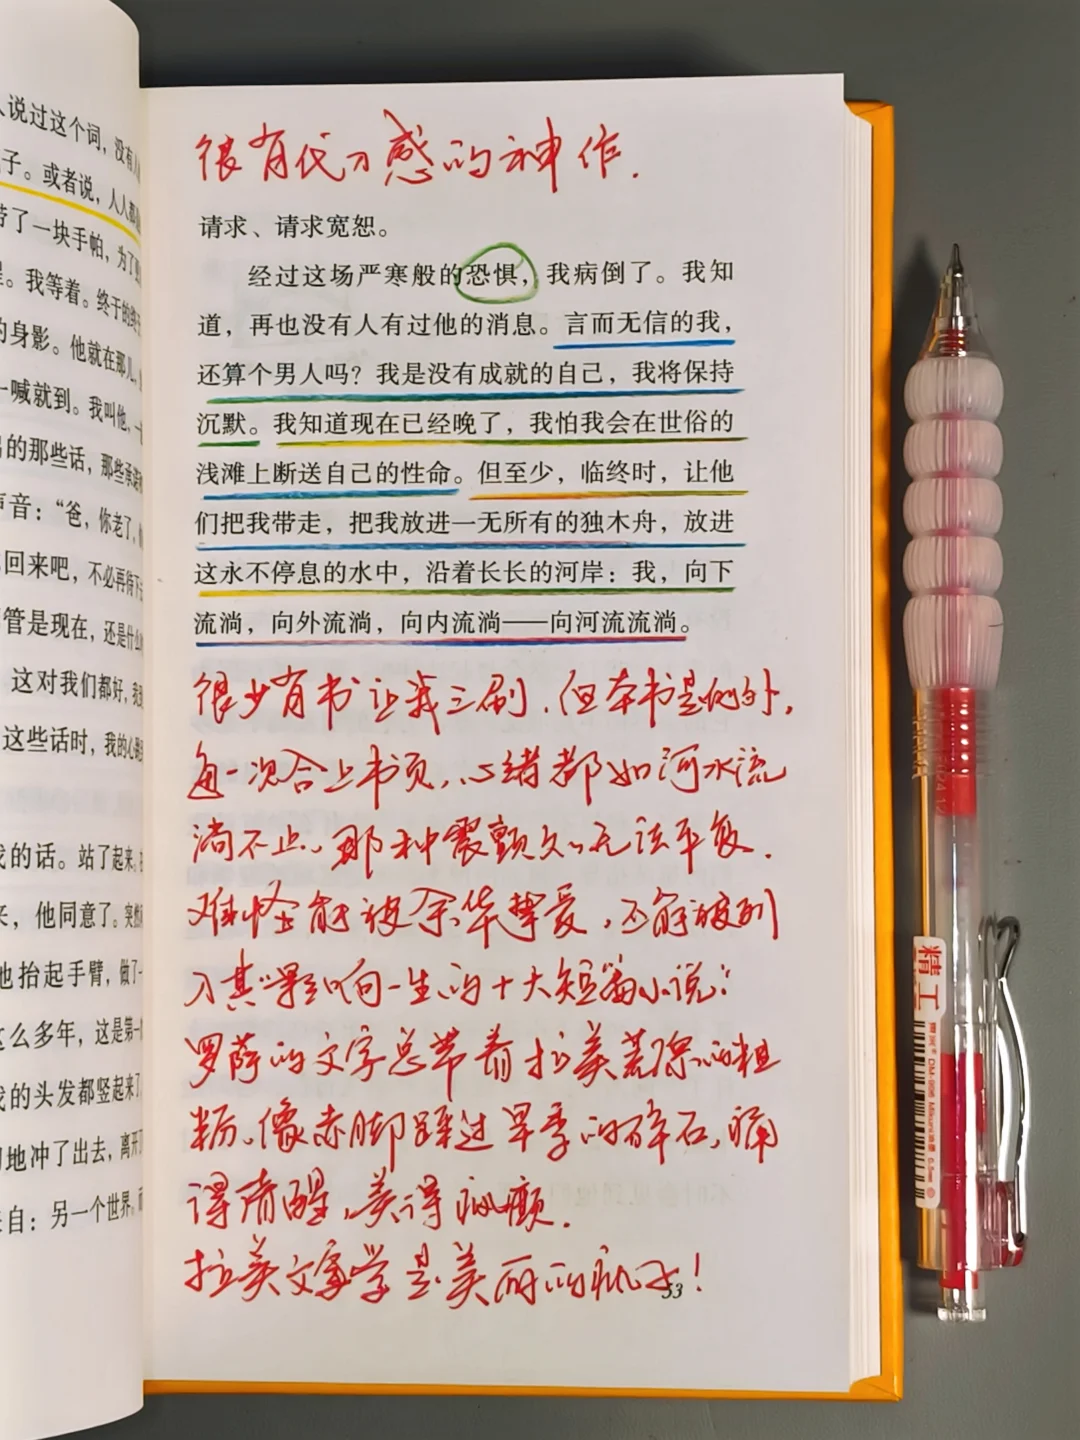 人说过这个词，没有人
子。或者说，人人都
带了一块手帕，为了
。我等着。终于
的身影。他就在那儿，
一喊就到。我叫他，一
的那些话，那些承诺
声音：“爸，你老了，
回来吧，不必再待下去
管是现在，还是什么
这对我们都好，我
这些话时，我的心
我的话。站了起来。
来，他同意了。突然
他抬起手臂，做了一
这么多年，这是第一
我的头发都竖起来了
地冲了出去，离开
来自：另一个世界。
很有代入感的神作.
请求、请求宽恕。
经过这场严寒般的恐惧，我病倒了。我知
道，再也没有人有过他的消息。言而无信的我，
还算个男人吗？我是没有成就的自己，我将保持
沉默。我知道现在已经晚了，我怕我会在世俗的
浅滩上断送自己的性命。但至少，临终时，让他
们把我带走，把我放进一无所有的独木舟，放进
这永不停息的水中，沿着长长的河岸：我，向下
流淌，向外流淌，向内流淌——向河流流淌。
很少有书让我三刷，但本书是例外，
每一次合上书页，心绪都如河水流
淌不止，那种震颤久久无法平复.
难怪能被余华挚爱，还能被列
入其“影响一生的十大短篇小说”：
罗萨的文字总带着拉美荒原的粗
粝，像赤脚踩过旱季的碎石，痛
得清醒，美得疯癫.
拉美文学是美丽的疯子！
53
精工
DM-996
0.5mm